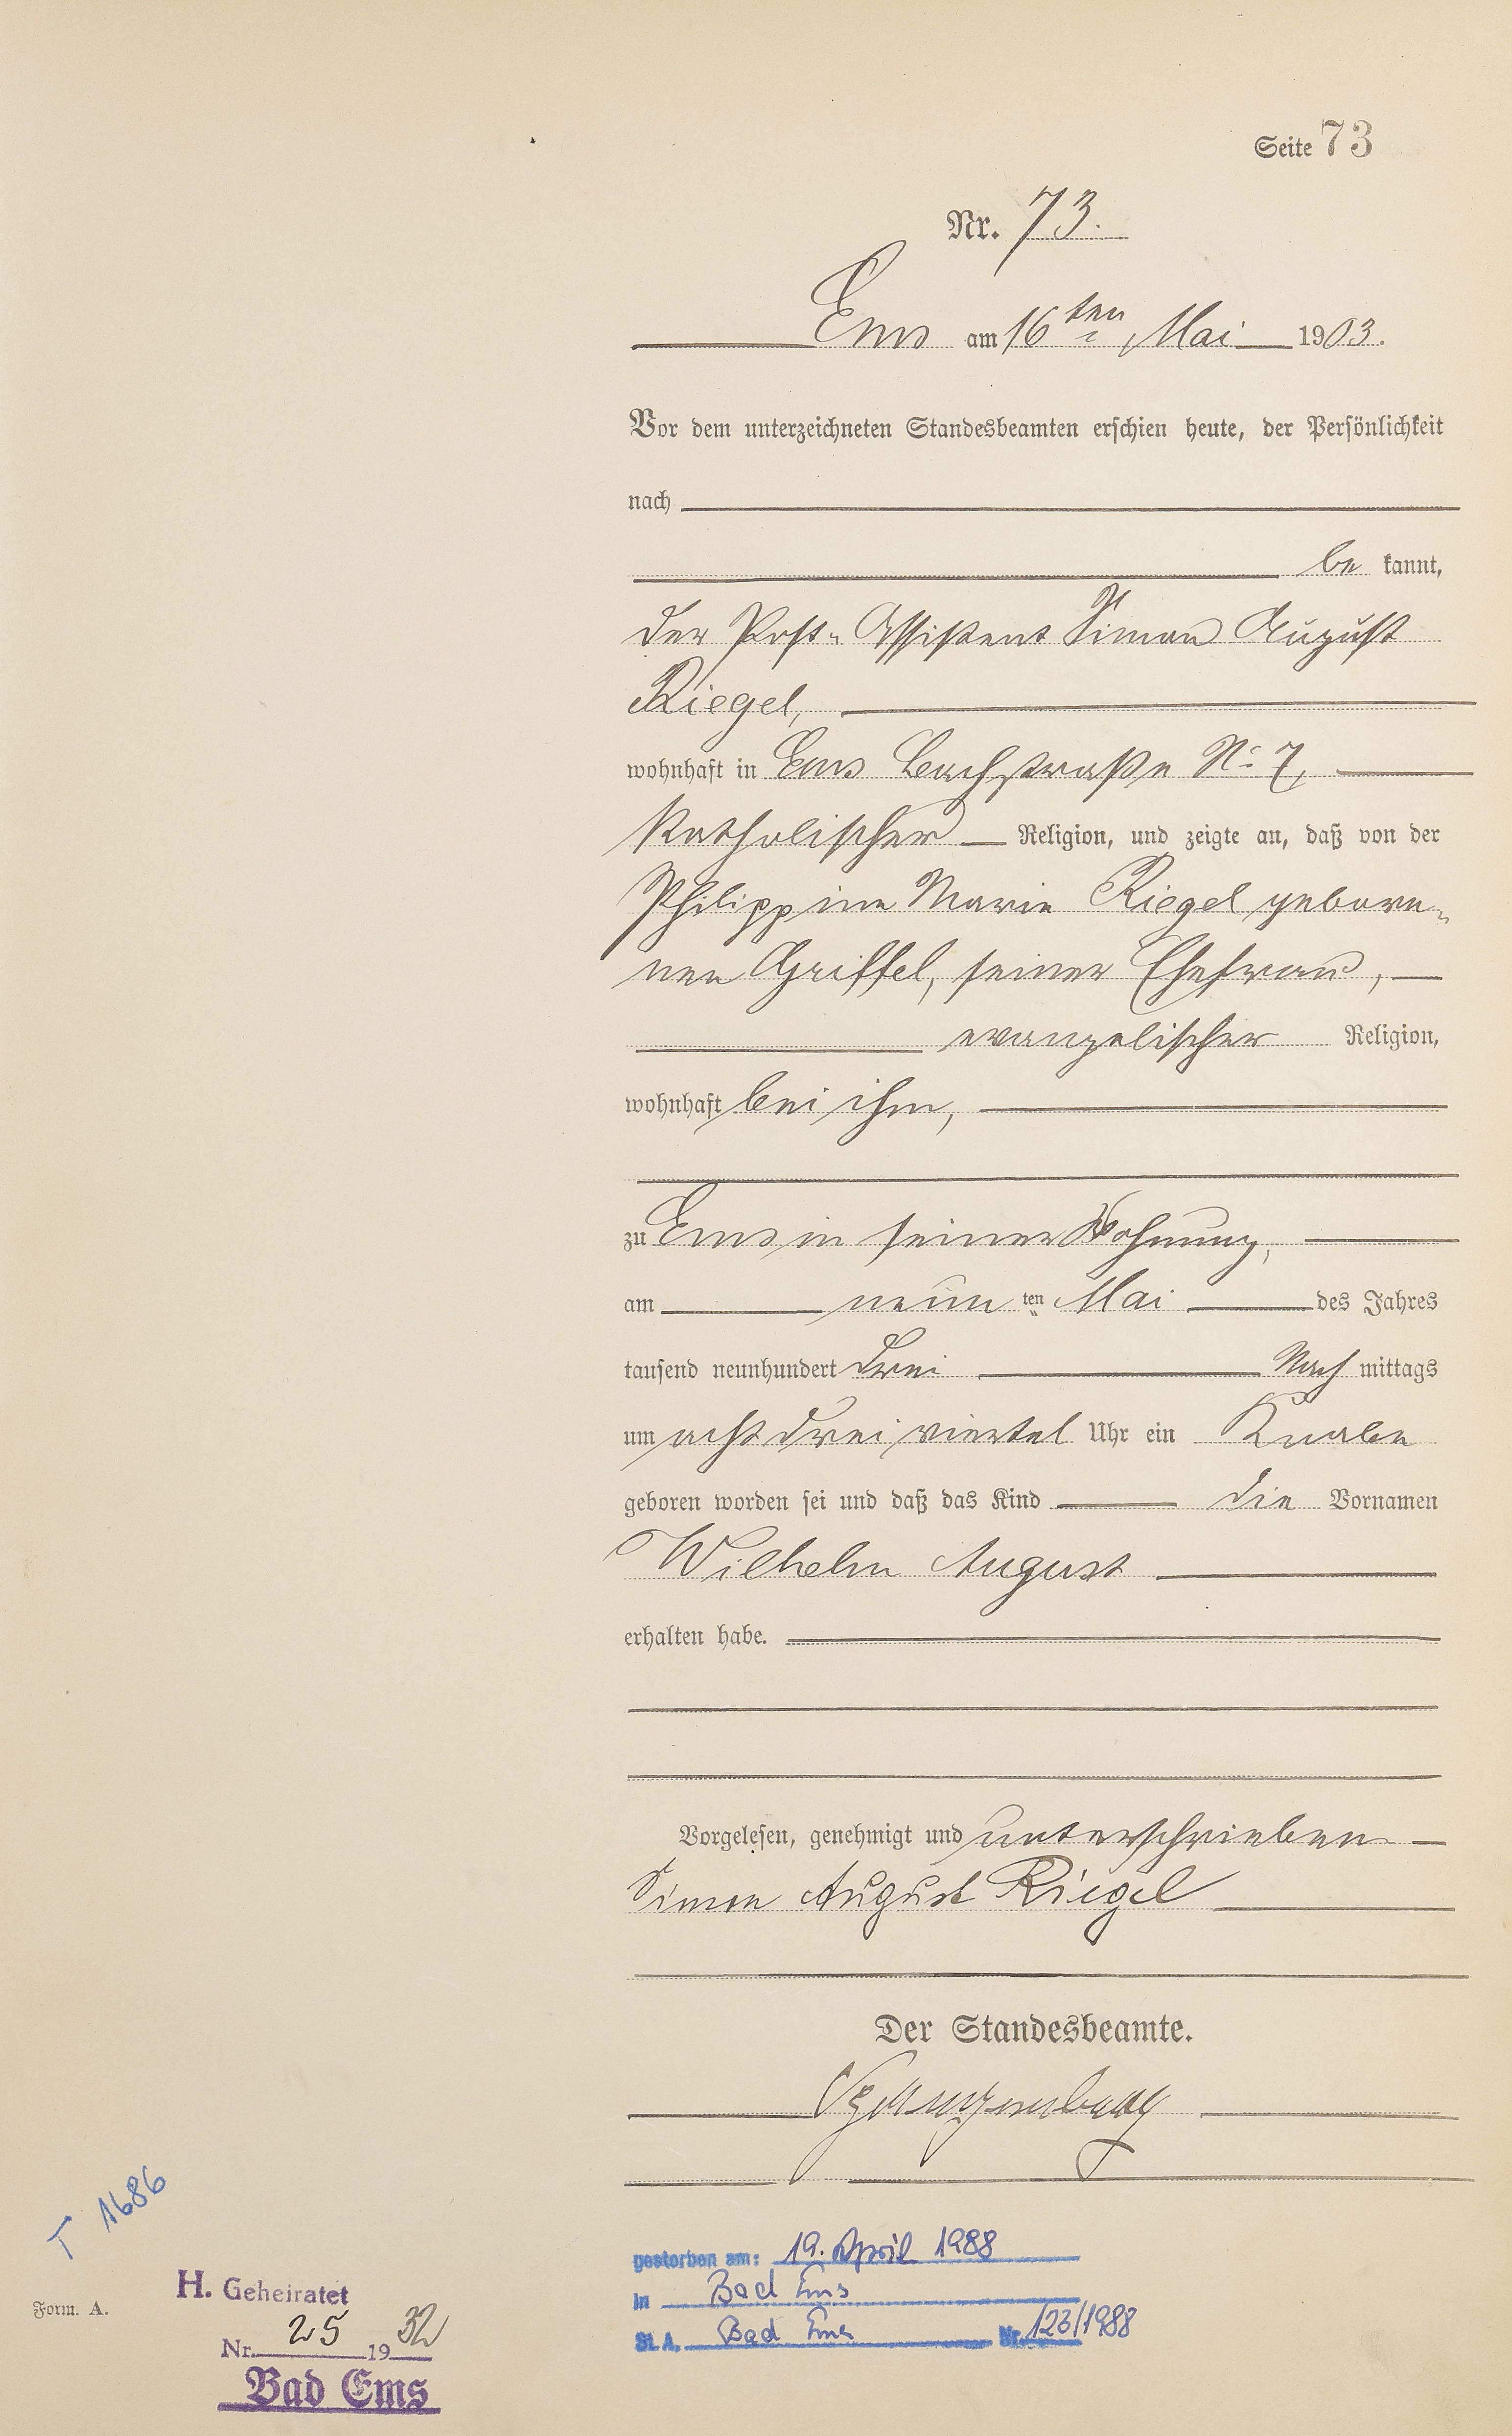 Seite 73
Nr. 73.
Ems am 16ten Mai 1903.
Vor dem unterzeichneten Standesbeamten erschien heute, der Persönlichkeit
nach
be kannt,
der Post-Assistent Simon August
Riegel,
wohnhaft in Ems Bachstraße No 7,
katholischer Religion, und zeigte an, daß von der
Philippine Marie Riegel gebore-
nen Griffel, seiner Ehefrau,
evangelischer Religion,
wohnhaft bei ihm,
zu Ems in seiner Wohnung,
am neun ten Mai des Jahres
tausend neunhundert drei Nach mittags
um acht drei viertel Uhr ein Knabe
geboren worden sei und daß das Kind die Vornamen
Wilhelm August
erhalten habe.
Vorgelesen, genehmigt und unterschrieben
Simon August Riegel
Der Standesbeamte.
T 1686
gestorben am: 19. April 1988
in Bad Ems
St. A. Bad Ems Nr. 123/1988
Form. A.
H. Geheiratet
Nr. 25 1932
Bad Ems